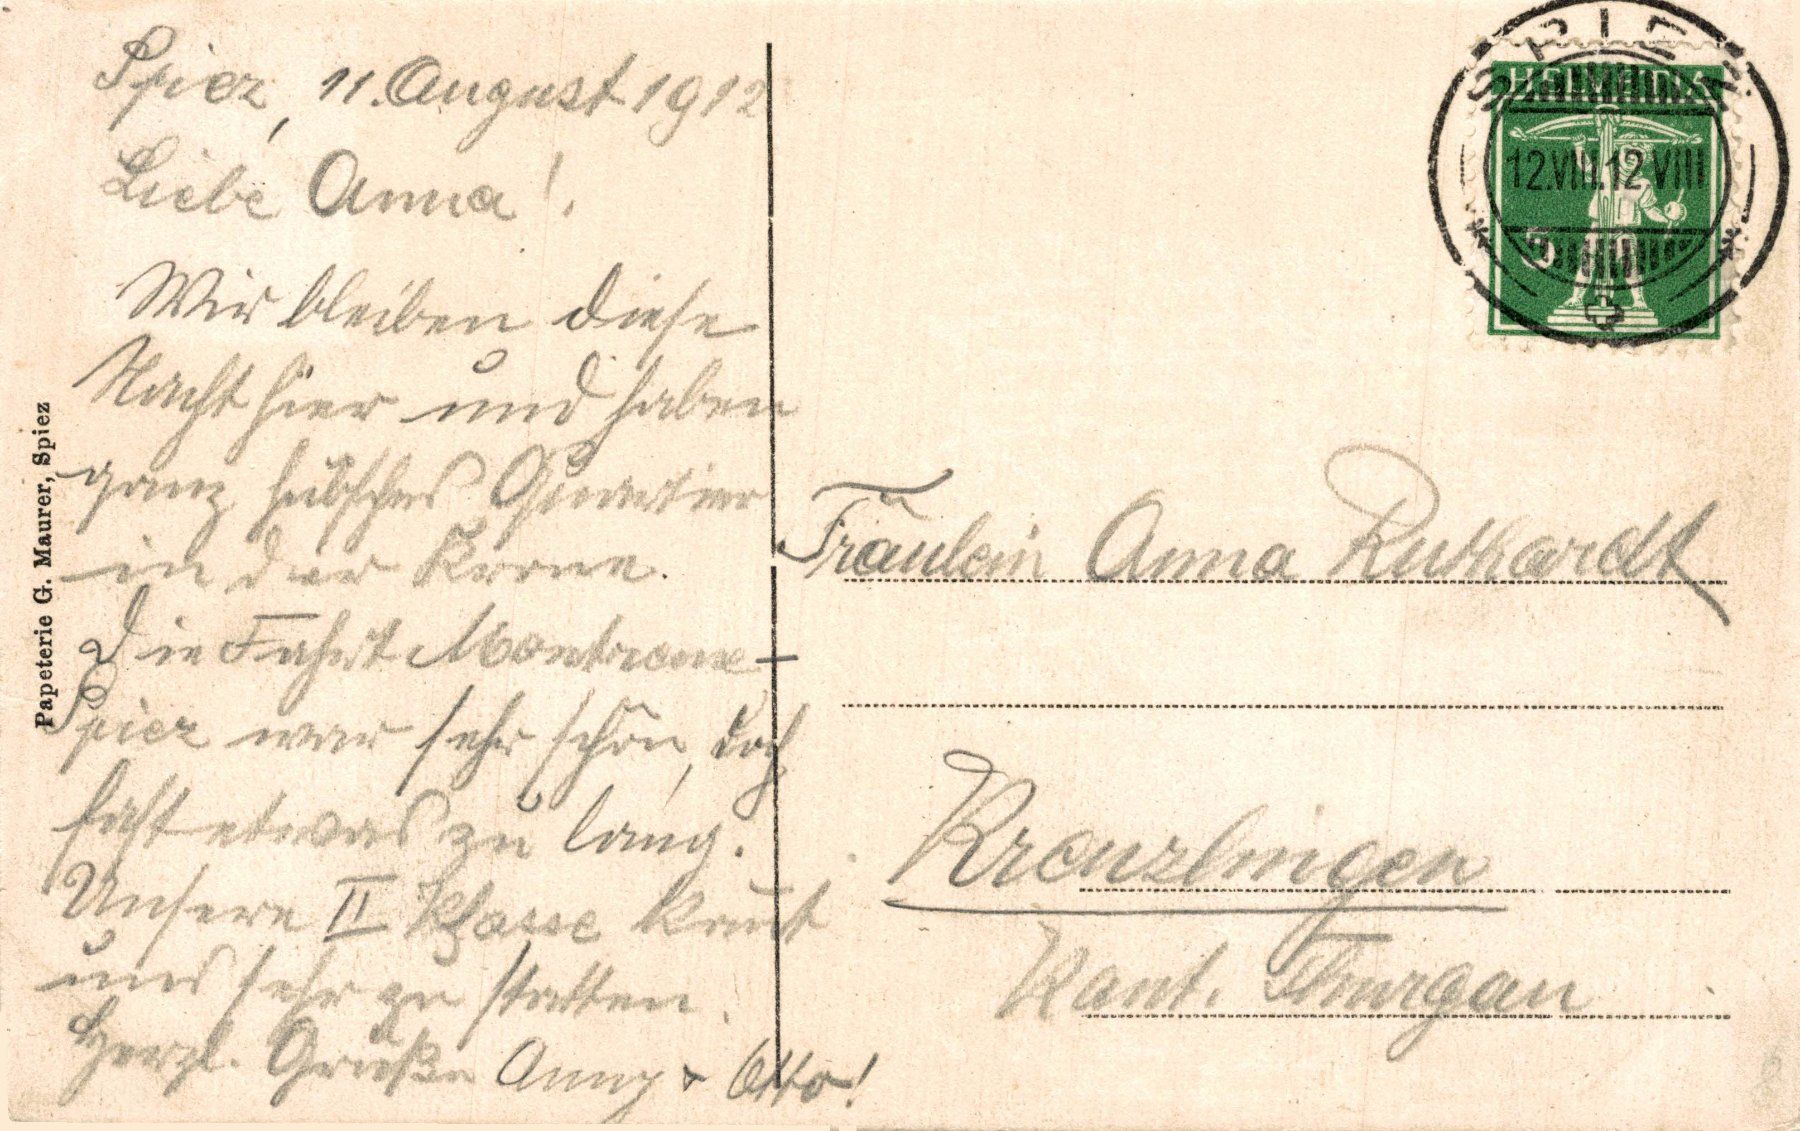 Spiez, 11. August 1912
Liebe Anna!
Wir bleiben diese
Nacht hier und haben
ganz hübsches Quartier
in der Krone.
Die Fahrt Montreux-
Spiez war sehr schön, doch
fast etwas zu lang.
Unsere II Klasse kam
uns sehr zu statten.
Herzl. Grüße Anny & Otto!
Papeterie G. Maurer, Spiez
SPIEZ
HELVETIA
12.VIII.12 VIII
5
Fräulein Anna Ruthardt
Kreuzlingen
Kant. Thurgau